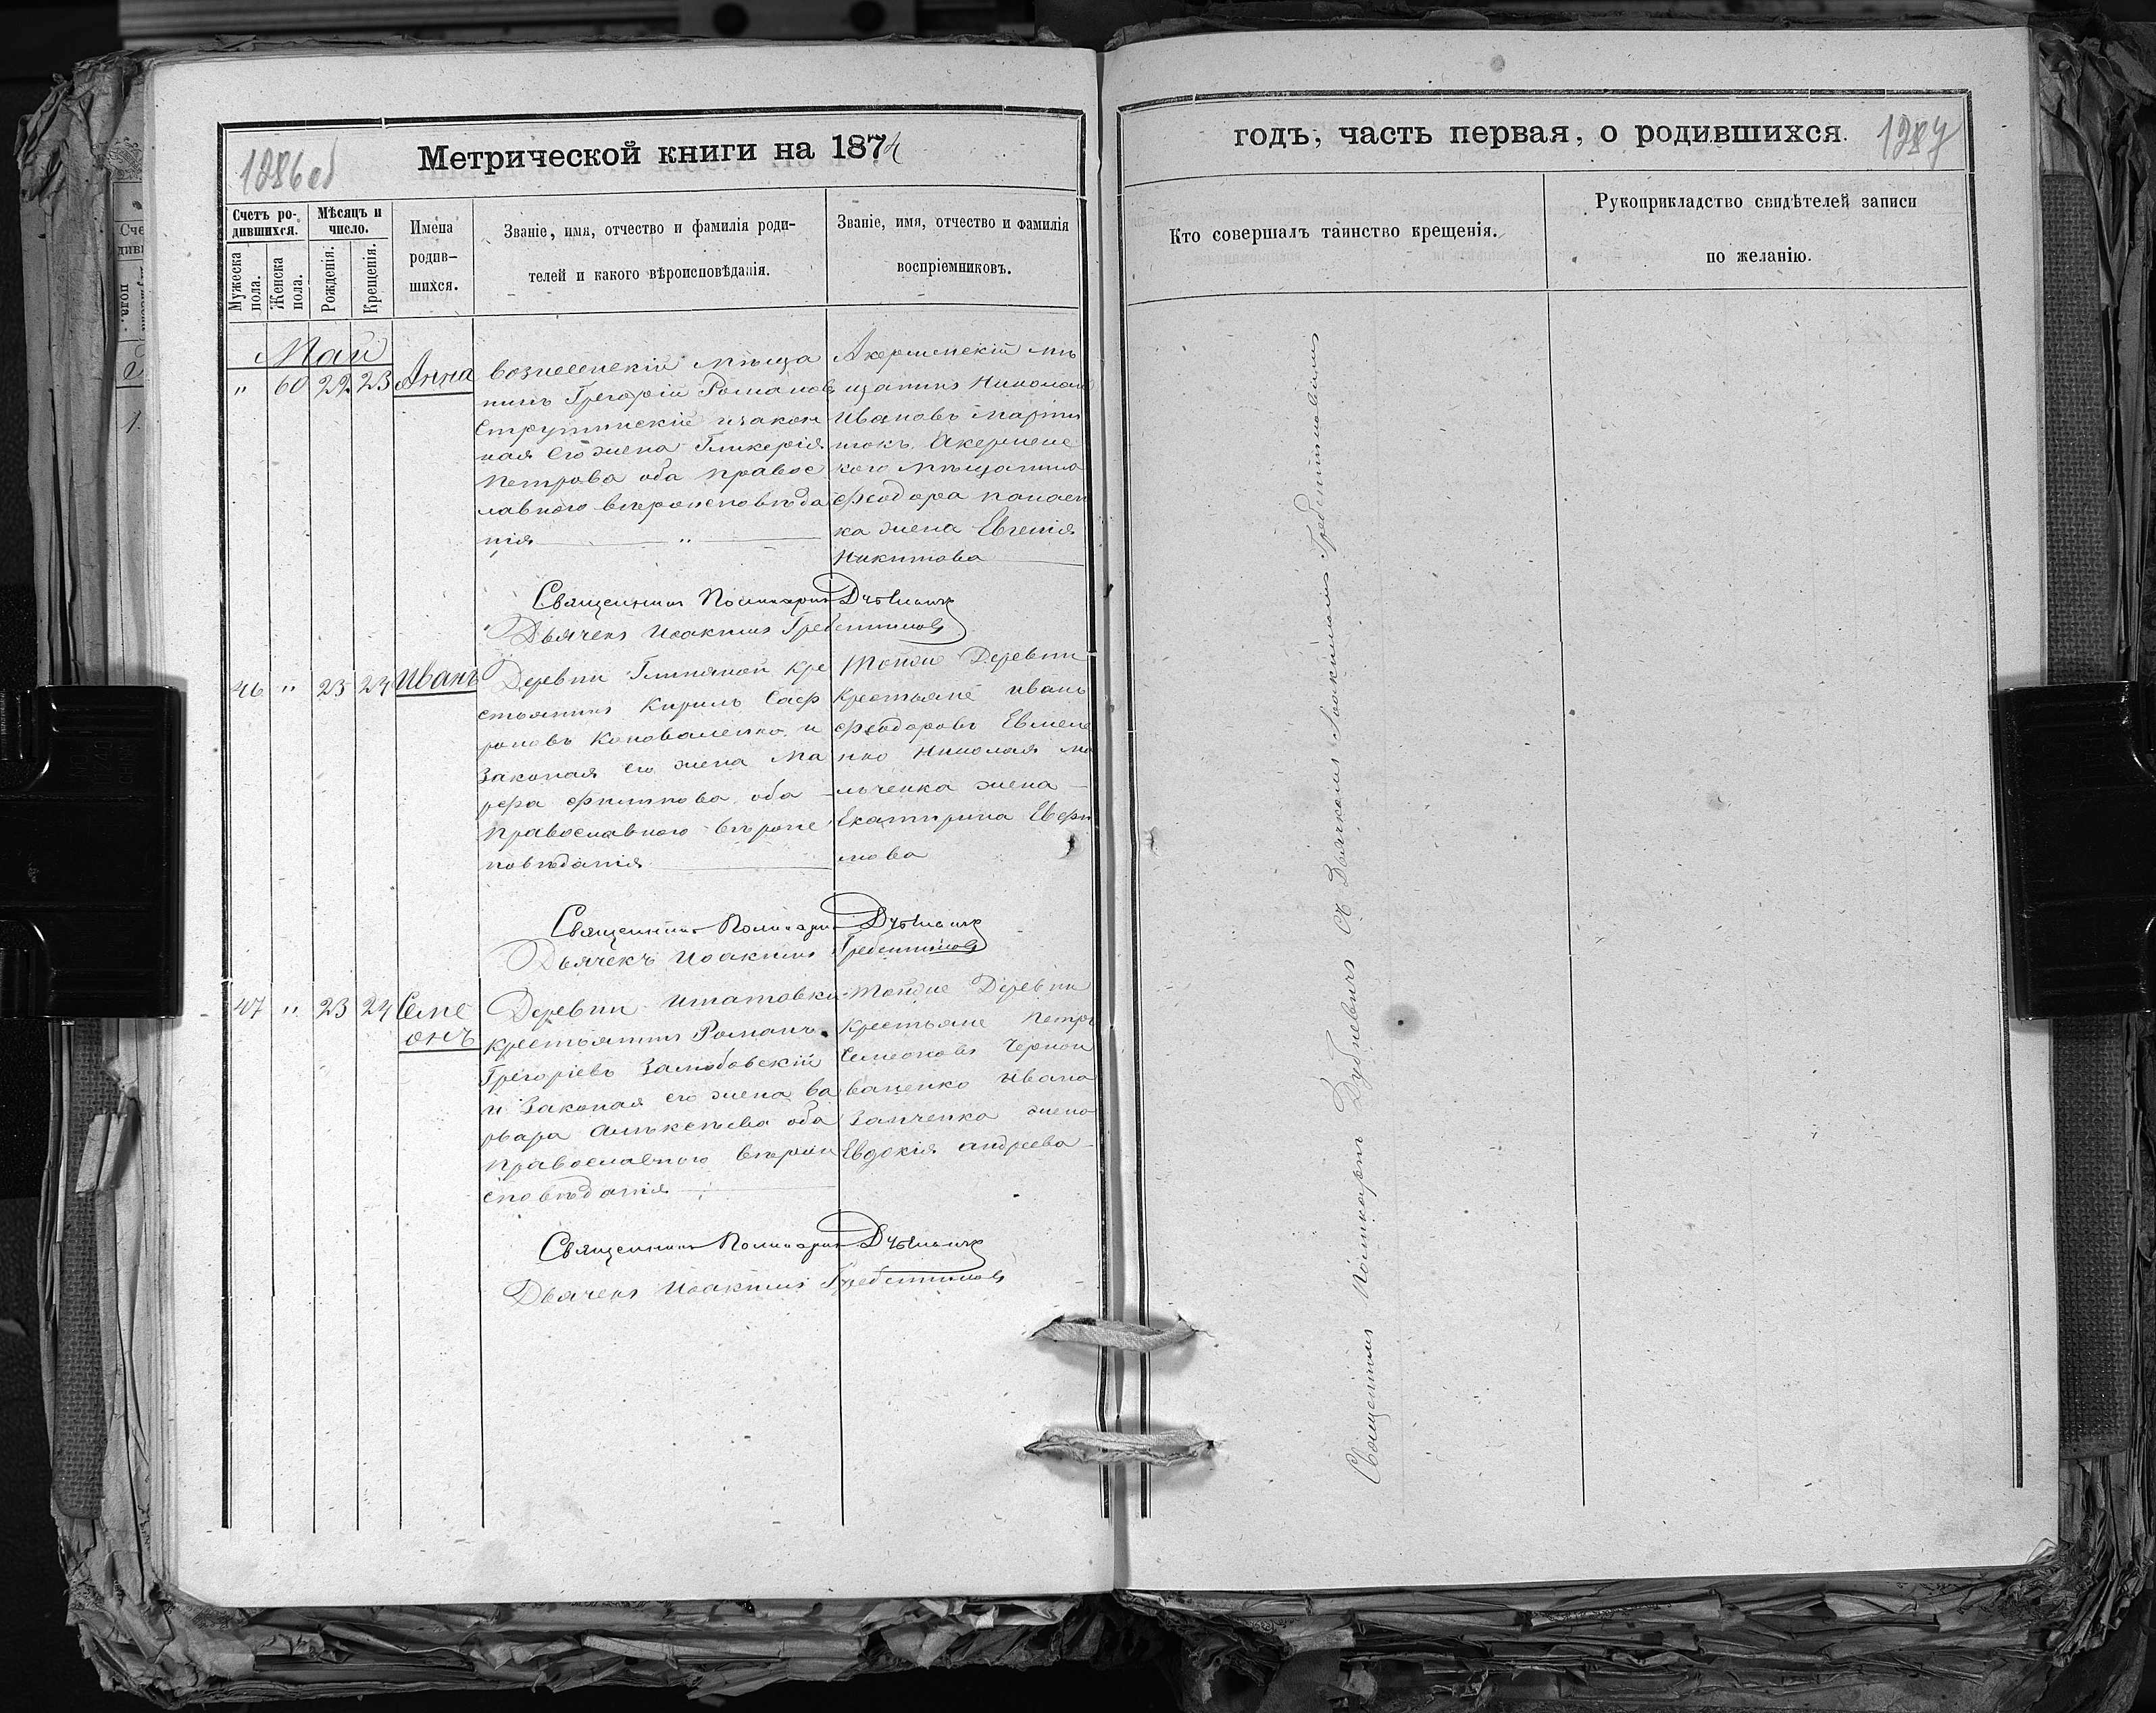 1286об
Метрической книги на 1874
Счетъ ро-
дившихся.
Мѣсяцъ и
число.
Мужеска
пола.
Женска
пола.
Рожденія.
Крещенія.
Имена
родив-
шихся.
Званіе, имя, отчество и фамилія роди-
телей и какого вѣроисповѣданія.
Званіе, имя, отчество и фамилія
воспріемниковъ.
Май
" 60 22 23 Анна
Вознесенскій мѣща
нинъ Григорій Романовъ
Струтинскій и закон
ная его жена Гликерія
Петрова оба правос
лавного вѣроисповѣда
нія
Акерменскій мѣ
щанинъ Николай
Ивановъ Марти
нюкъ. Акермен
кого мѣщанина
Феодора
ка жена Евгенія
Никитова
Священникъ Поликарпъ
Дьячекъ Иоакимъ Гребенниковъ
46 " 23 24 Иванъ
Деревни Глиняной кре
стьянинъ Кирилъ Саф
роновъ Коноваленко и
Законая его жена Ма
рфа Филипова оба
православного вѣроис
повѣданія
Тойже Деревни
Крестьяне Иванъ
Феодоровъ Евмене
нко Николая Ма
льченка жена
Екатирина Евфи
мова
Священникъ Поликарпъ
Дьячекъ Иоакимъ Гребенниковъ
47 " 23 24 Симе
онъ
Деревни Игнатовки
крестьянинъ Романъ
Григоріевъ
и Законая его жена Ва
рвара Алѣксѣева оба
православного вѣрои
сповѣданія
Тойже Деревни
Крестьяне Петръ
Семеоновъ Чернои
ваненко Ивана
Заиченка жена
Евдокія андреева
Священникъ Поликарпъ
Дьячекъ Иоакимъ Гребенниковъ
годъ, часть первая, о родившихся.
1287
Кто совершалъ таинство крещенія.
Рукоприкладство свидѣтелей записи
по желанію.
Священникъ Поликарпъ Дубневичъ съ Дьячкомъ Іоакимомъ Гребенниковымъ